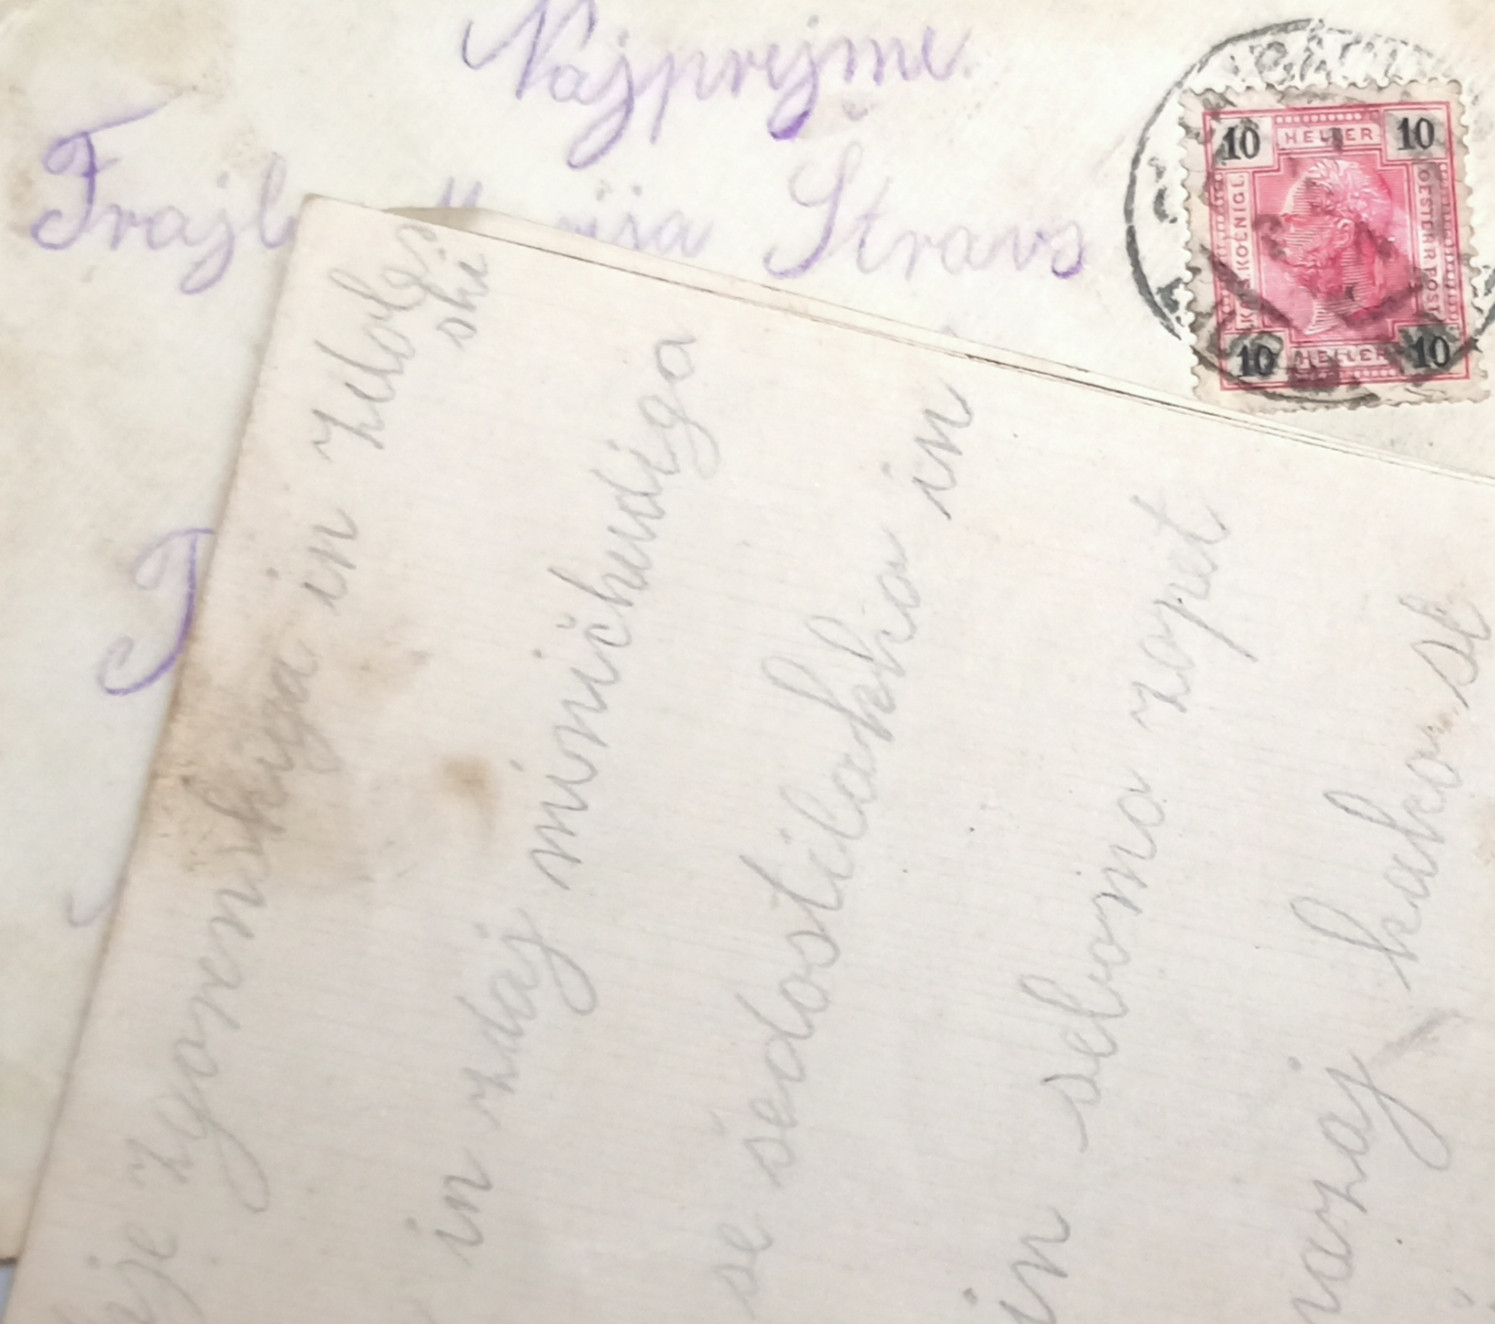 Najprejme
Frajl
ija Štravs
10 HELLER 10
KAIS. KOENIGL. OESTERR. POST
10 HELLER 10
je zgorenskiga in
ski
in zdaj miničhudiga
se šedostilakko in
in seboma zopet
nazaj kako se